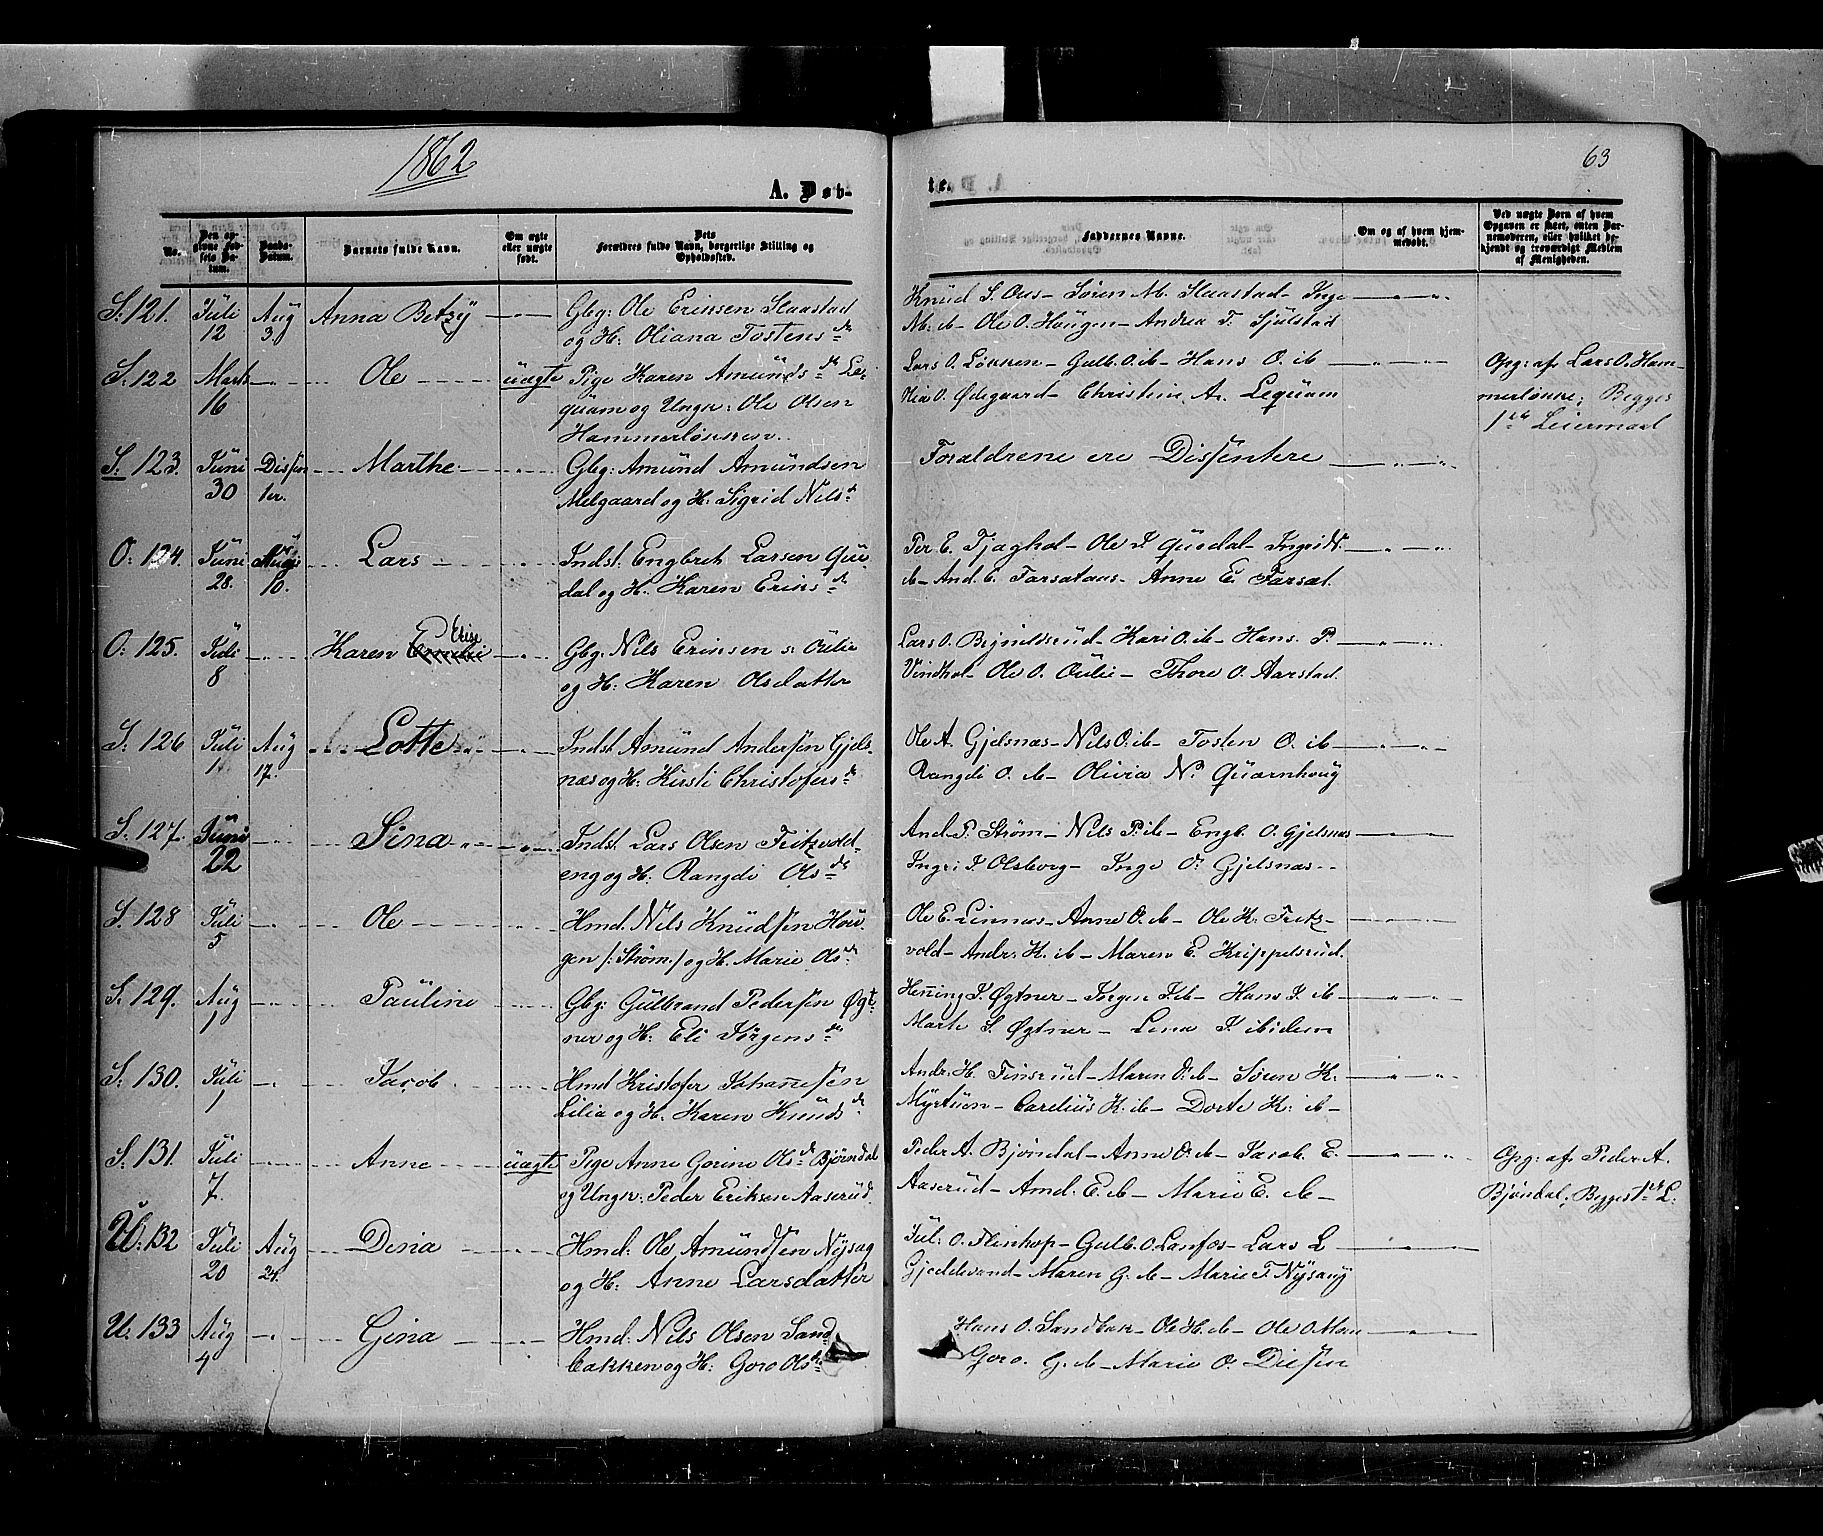 1862
63
A. Døb-
te.
No.
Den opgivne Fødsels Datum.
Daabs-Datum.
Barnets fulde Navn.
Om ægte eller uægte født.
Dets Forældres fulde Navn, borgerlige Stilling og Opholdssted.
Faddernes Navne.
Om og af hvem hjemmedøbt.
Ved uægte Børn af hvem Opgaven er skeet, enten Barnemoderen, eller hvilket bekjendt og troværdigt Medlem af Menigheden.
S. 121. Juli 12 Aug 3. Anna Betzy Gbg: Ole Ericsen Staastad
og H: Oliana Tostensdr
Knud S. Søren M. Staastad Inge
M: ib Ole O. Haugen Andrea T. Sjulstad
S. 122 Marts 16 Ole uægte Pige Karen Amundsdr Le-
quam og Ungk: Ole Olsen
Hammerløkken
Lars O. Løkken Gulb. O. ib Hans O. ib
O. Ødegaard Christin A. Lequam
Opg: af Lars O. Ham-
merløkke; Begges
1ste Leiermaal
S. 123. Juni 30 Dissenter. Marthe Gbg: Amund Amundsen
Melgaard og H: Sigrid Nilsd
Forældrene ere Dissentere
O: 124. Juni 28. Aug 10. Lars Indst. Engbret Larsen Que-
dal og H. Karen Ericsdr
Per E. Ole Quedal Ingri
ib And. E. Anne E.
O: 125. Juli 8 Karen Elise Gbg: Nils Ericsen s: Oulie
og H: Karen Olsdatter
Lars O. Kari O. ib Hans P.
Ole O. Oulie Thore O. Aarstad
S. 126 Juli 1. Aug 17. Lotte Indst. Amund Andersen Gjels-
næs og H: Kirsti Christofersdr
Ole A. Gjelsnæs Nils O. ib Tosten O. ib
Rangdi O. ib Olivia N. Quarnhoug
S. 127. Juni 22 Sina Indst Lars Olsen Fritzvold-
eng og H: Rangdi Olsdr
And. P. Strøm Nils P. ib Engb. O. Gjelsnæs
Ingri Olsborg Inge O. Gjelsnæs
S. 128 Juli 5 Ole Hmd. Nils Knudsen Hou-
gen /: Strøm :/ og H. Marie Olsdr
Ole E. Linnæs Anne O. ib Ole K. Fritz-
vold Andr: K. ib Maren E. Krippelsrud.
S. 129. Aug 1 Pauline Gbg: Gulbrand Pedersen Øgt-
ner og H: Eli Jørgensdr
Henning J. Øgtner Jørgen J. ib Hans J. ib
Marte S. Øgtner Lena J. ibidem
S. 130. Juli 1 Jacob Hmd Kristofer Johannesen
Lilia og H. Karen Knudsdr
Andr. H. Finsrud Maren O. ib Søren K.
Carelius K. ib Dorte K: ib
S. 131. Juli 7. Anne uægte Pige Anne Gorine Olsdr Bjørndal
og Ungk: Peder Eriksen Aaserud
Peder A. Bjøndal Anne O. ib Jacob E.
Aaserud Amd. E. ib Marie E. ib
Opg: af Peder A.
Bjøndal; Begges 1ste L:
U: 132 Juli 20 Aug 24. Dina Hmd: Ole Amundsen Nysag
og H: Anne Larsdatter
Jul: O. Gulb. O. Lanfos Lars L
Gjeddevand Maren G. ib Marie T. Nysaug
U: 133 Aug 4 Gina Hmd. Nils Olsen Sand-
bakken og H: Goro Olsdr
Hans O. Sandbak Ole H. ib Ole O. Moen
Goro. G. ib Marie O. Diesen